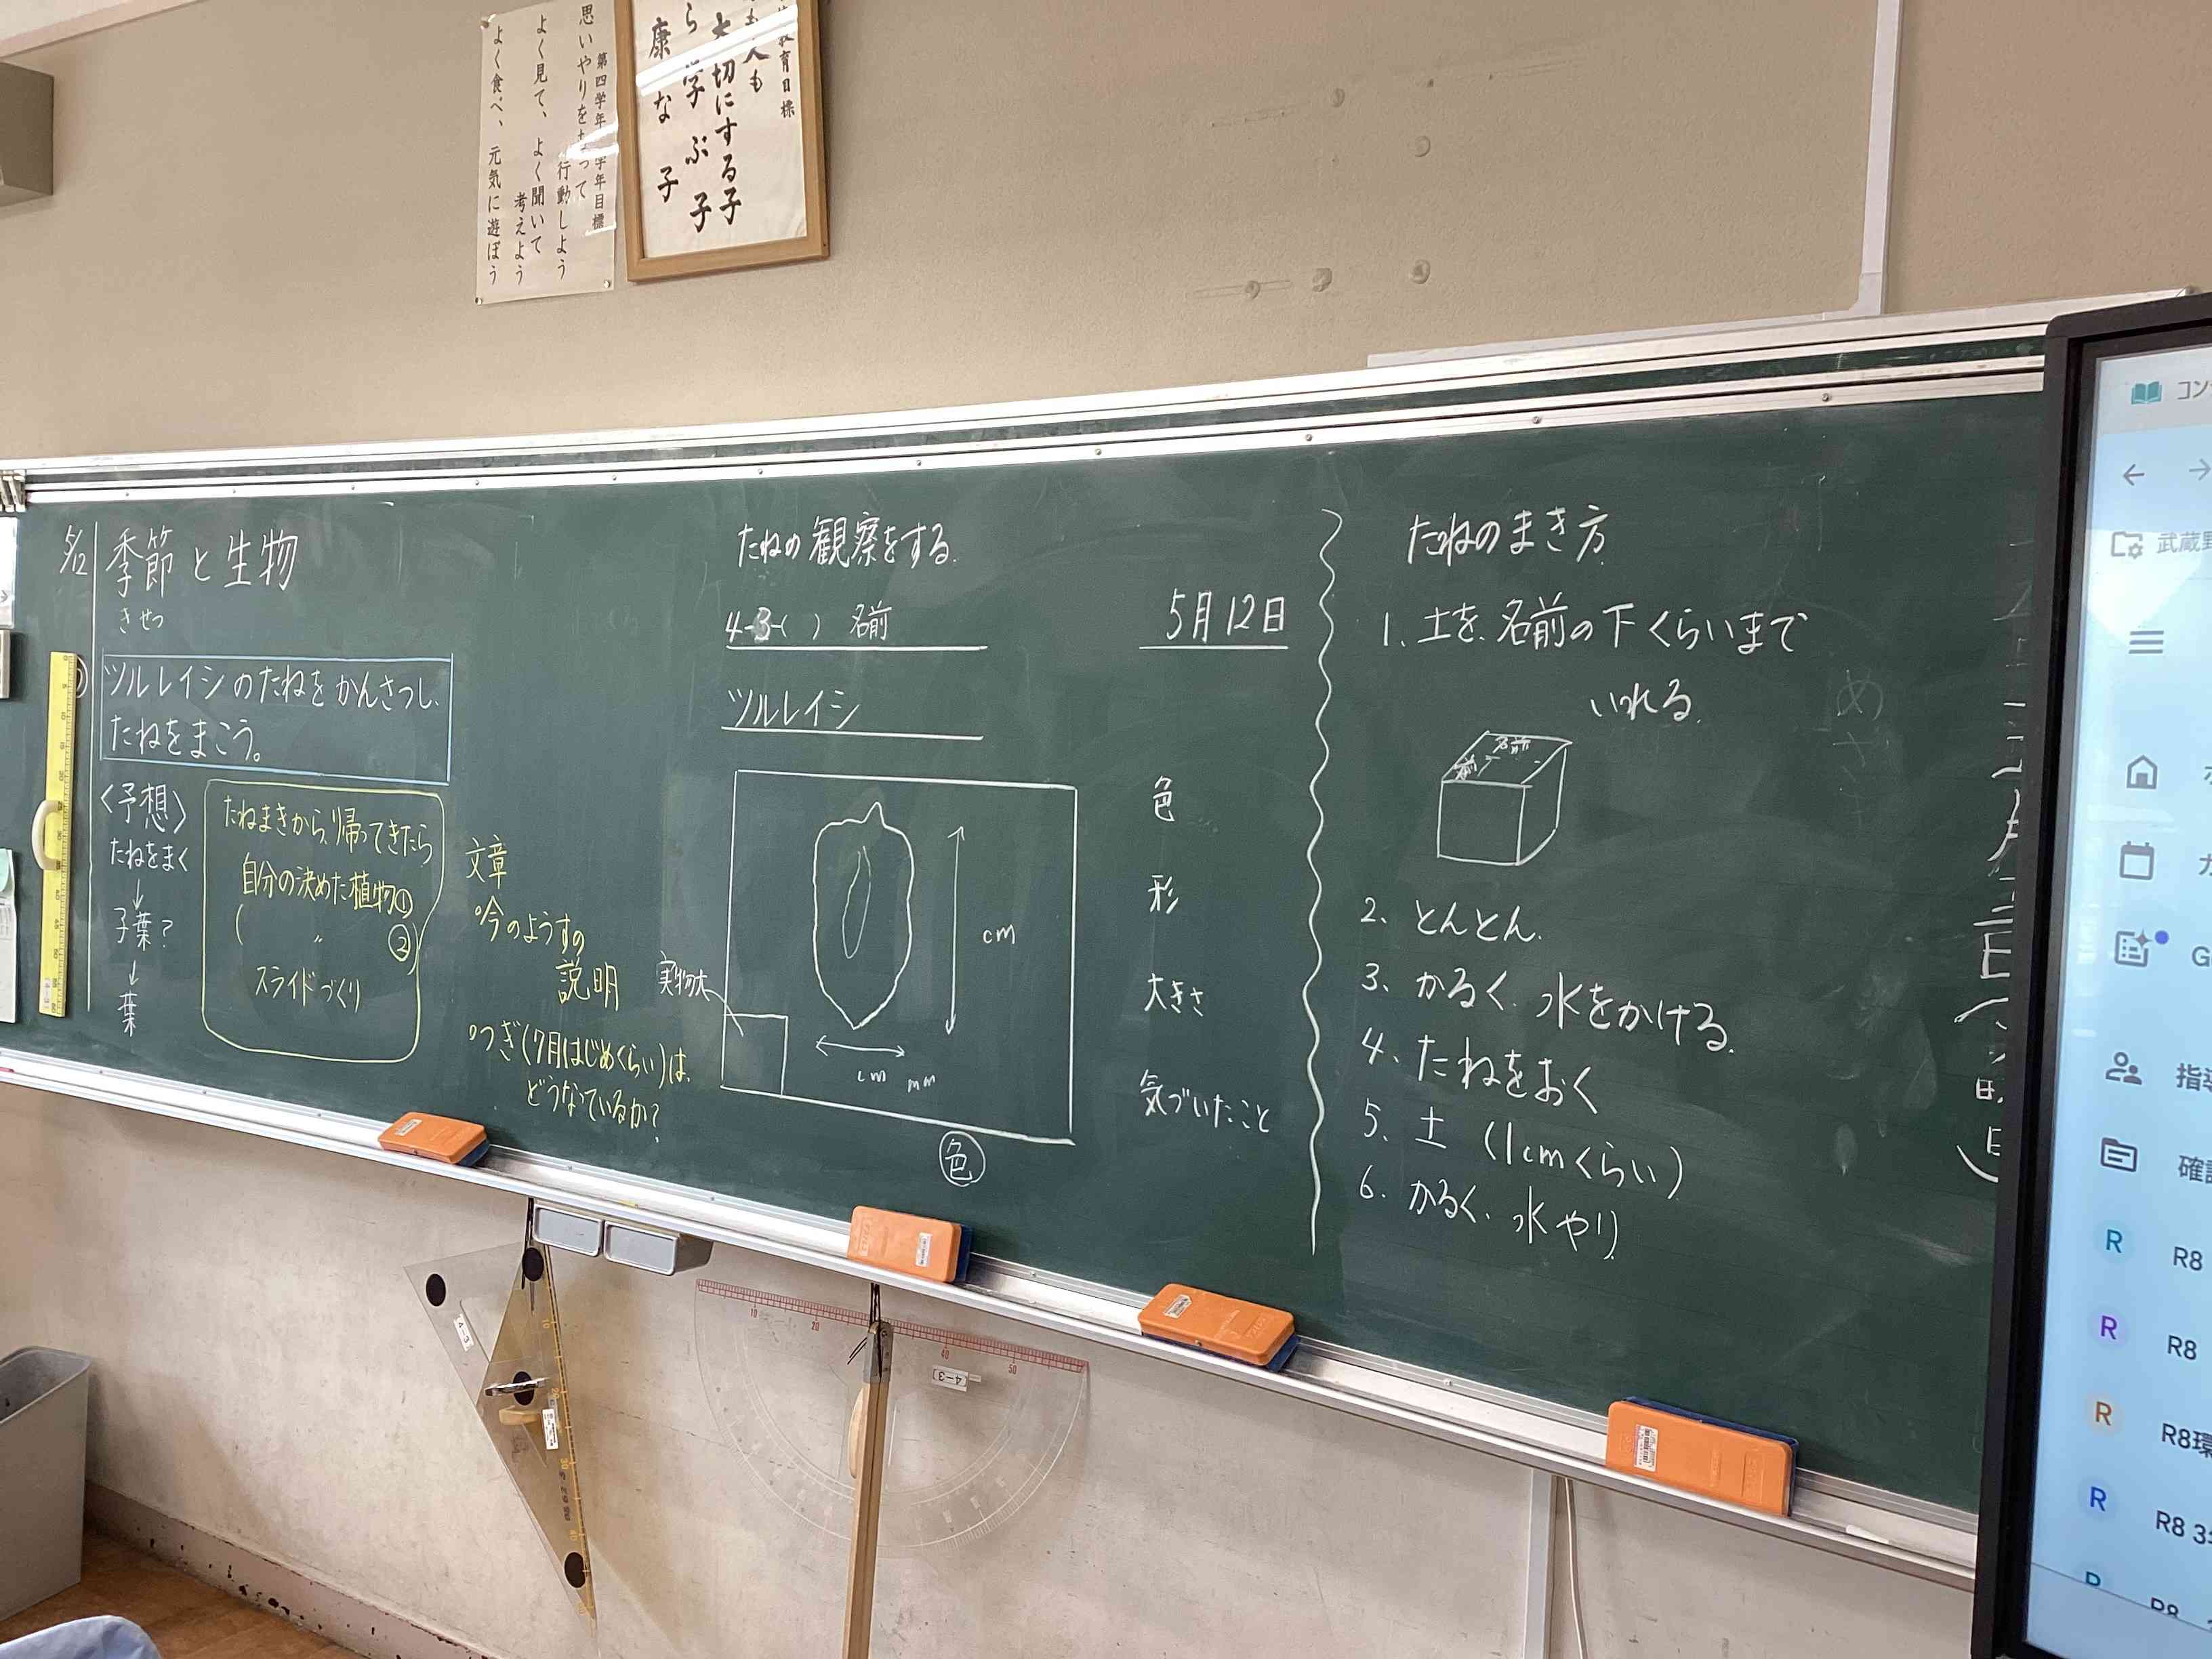 第四学年 学年目標
思いやりをもって
行動しよう
よく見て、よく聞いて
考えよう
よく食べ、元気に遊ぼう
教育目標
人も
大切にする子
学ぶ子
康な子
名
季節と生物
きせつ
ツルレイシのたねをかんさつし、
たねをまこう。
〈予想〉
たねをまく
↓
子葉?
↓
葉
たねまきから、帰ってきたら
自分の決めた植物①
( 〃 ②)
スライドづくり
文章
○今のようすの
説明
○つぎ(7月はじめくらい)は、
どうなっているか?
たねの観察をする。
4-3-( ) 名前
5月12日
ツルレイシ
実物大
cm
cm mm
色
色
形
大きさ
気づいたこと
たねのまき方
1、土を、名前の下くらいまで
いれる。
名前
名前
2、とんとん。
3、かるく、水をかける。
4、たねをおく
5、土 (1cmくらい)
6、かるく、水やり
めあて
月
日
コン
武蔵野
G
指導
確認
R R8
R R8
R R8環
R R8 3
R R8
4-3
10
20
40
50